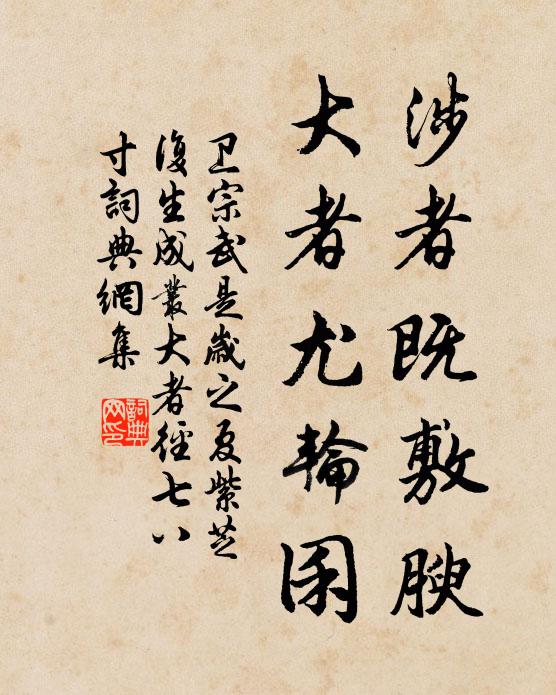 涉者既敷腴
大者尤輪囷
卫宗武是歲之夏紫芝
復生成叢大者徑七八
寸詞典網集
詞典
网印